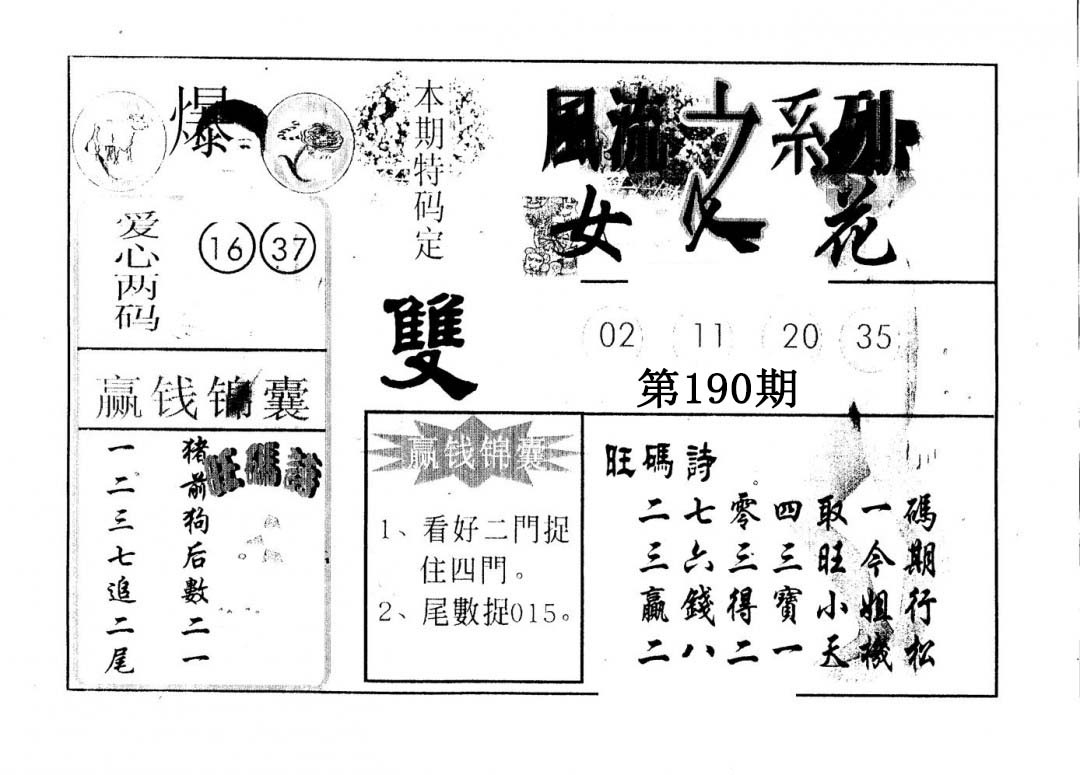 爆
本期特码定
雙
風流之系列
女人花
爱心两码
16 37
02 11 20 35
第190期
赢钱锦囊
一二三七追二尾
猪前狗后數二一
旺碼詩
赢钱锦囊
1、看好二門捉
住四門。
2、尾數捉015。
旺碼詩
二七零四取一碼
三六三三旺今期
赢錢得寶小姐行
二八二一天機松